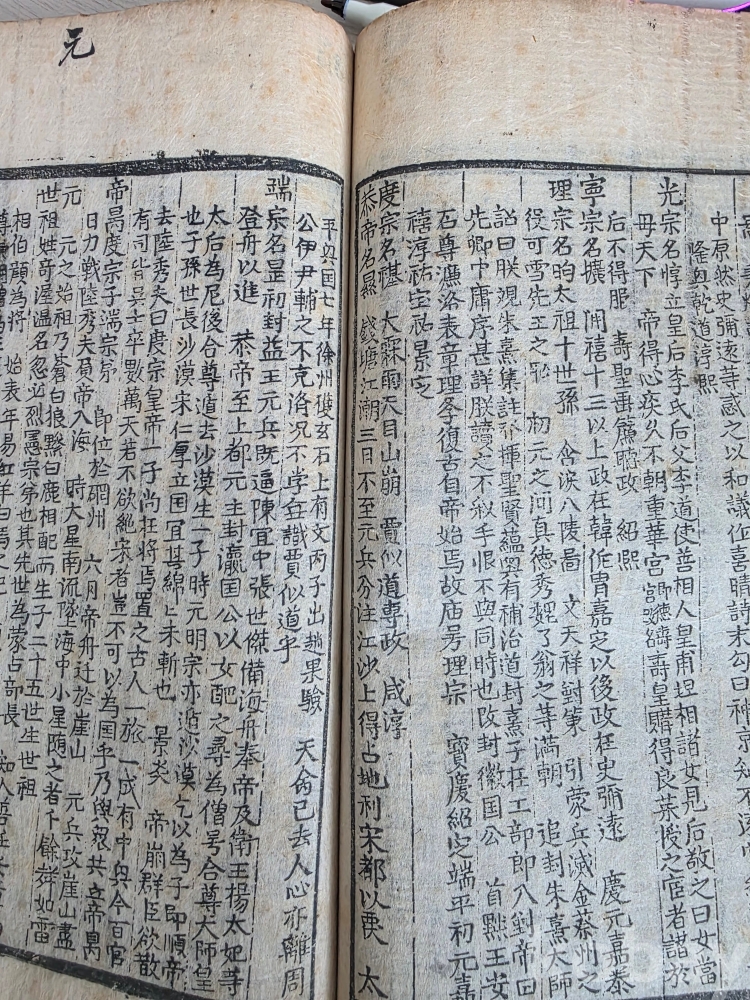 中原然史弥遠等惑之以和議
隆興乾道淳熙
光宗名惇立皇后李氏后父李道使善相人皇甫坦相諸女見后敬之曰女當
毋天下 帝得心疾久不朝重華宮 壽皇購得良藥授之宦者譖於
后不得服 壽聖垂簾聴政 紹熙
寧宗名擴 開禧十三以上政在韓侂胄嘉定以後政在史彌遠 慶元嘉泰
理宗名昀太祖十世孫 含淚八陵啚 文天祥對策 引蒙兵滅金蔡州之
役可雪先王之恥 初元之间真德秀魏了翁之等滿朝 追封朱熹太師
詔曰朕觀朱熹集註發揮聖賢蘊奧有補治道封熹子在工部郎入對帝曰
先卿中庸序甚詳朕讀之不釈手恨不與同時也改封徽国公 首黜王安
石尊濂洛表章理學復古自帝始焉故庙号理宗 寳慶紹定端平初元嘉
禧淳祐宝祐景定
度宗名禥 大霖雨天目山崩 賈似道專政 咸淳
恭帝名㬎 錢塘江潮三日不至元兵分汪江沙上得占地利宋都以䘮 太
元
平興国七年徐州雙玄石上有文丙子出趙果驗 天命已去人心亦離周
公伊尹輔之不克済况不学無識賈似道乎
瑞宗名昰初封益王元兵既逼陳宜中張世傑備海舟奉帝及衛王楊太妃等
登舟以進 恭帝至上都元主封瀛国公以女配之尋為僧号合尊大師皇
太后為尼後合尊遁去沙漠生一子時元明宗亦遁沙漠乞以為子即順帝
也子孫世長沙漠宋仁厚立国宜其綿〻未斬也 景炎 帝崩群臣欲散
去陸秀夫曰度宗皇帝一子尚在將焉置之古人一旅一成有中興今百官
有司皆具士卒數萬天若不欲絶宋者豈不可以為国乎乃與衆共立帝昺
帝昺度宗子端宗弟 即位於碙州 六月帝舟迁於崖山 元兵攻崖山盡
日力戰陸秀夫負帝入海 時大星南流墜海中小星随之者千餘聲如雷
元 元之始祖乃蒼白狼黲白鹿相配而生子二十五世生世祖
世祖姓奇渥温名忽必烈憲宗弟也其先世為蒙古部長 知人善任
相伯顔為將 始表年易紅羊白馬